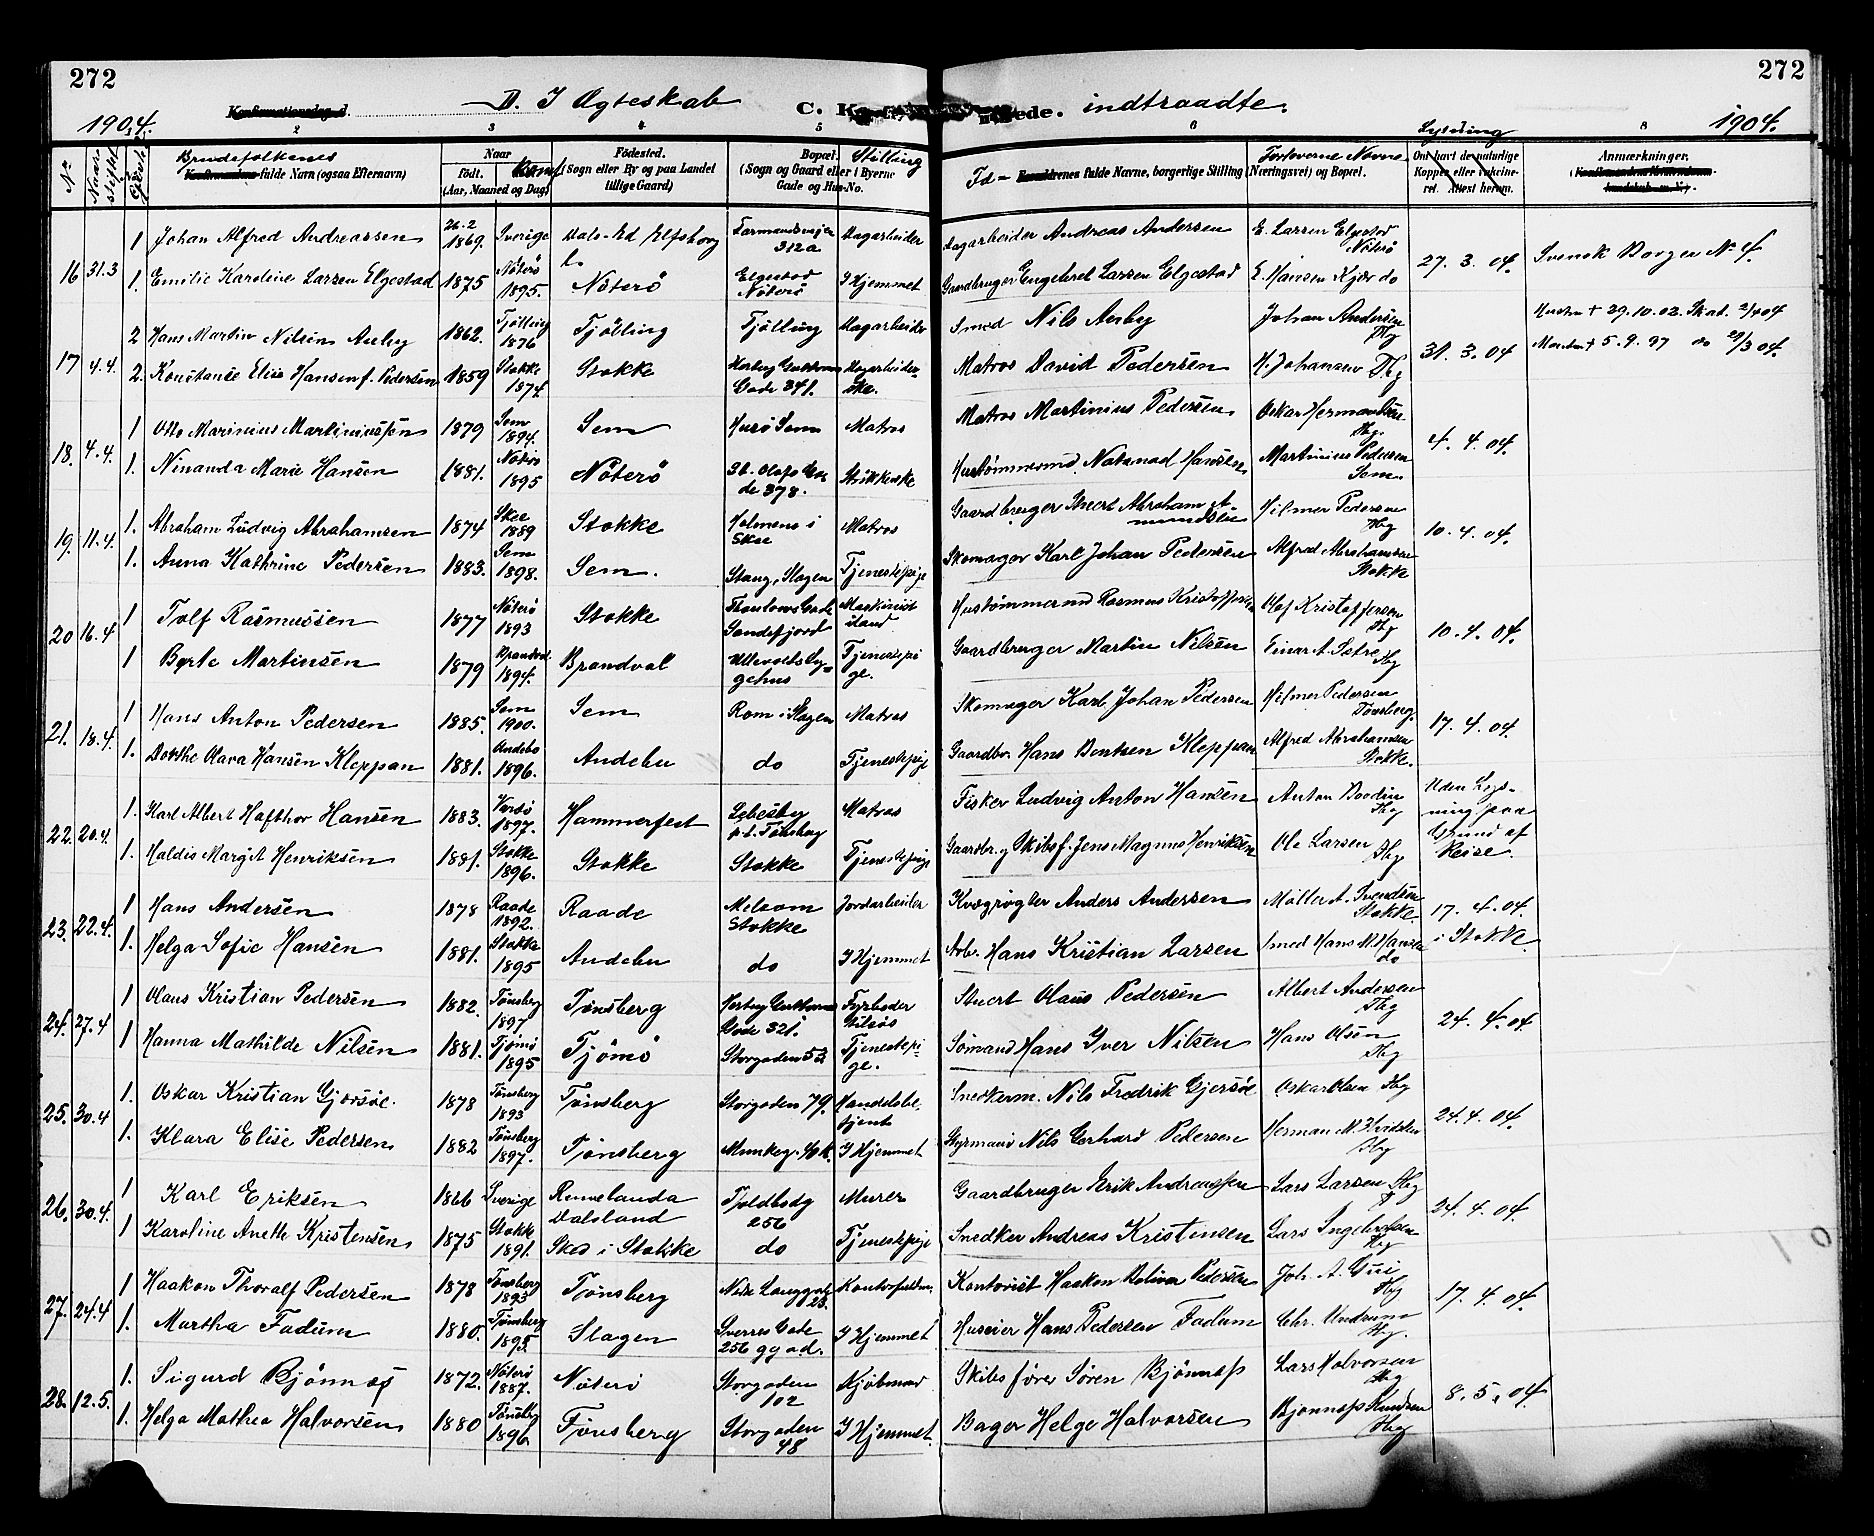 272
272
D. I Ægteskab indtraadte.
C. Ko
ede.
1904.
1904.
Konfirmationsdag d.
2 3 4 5 6 8
Lysning
No
Brudefolkenes
Konfirmandens fulde Navn (ogsaa Efternavn)
Naar
født. Konf.
(Aar, Maaned og Dag)
Fødested.
(Sogn eller By og paa Landet
tillige Gaard)
Bopæl.
(Sogn og Gaard eller i Byerne
Gade og Hus-No.
Stilling
Fd- Forældrenes fulde Navne, borgerlige Stilling (Næringsvei) og Bopæl.
Forloverne Navne
Om havt de naturlige
Kopper eller vakcine-
ret. Attest herom.
Anmærkninger.
16 31.3 1 Johan Alfred Andreassen 26.2 1869. Sverige Dals-Ed Elfsborg l. Farmandsveien 312a Dagarbeider Dagarbeider Andreas Andersen E. Larsen Elgestad Nöterö 27. 3. 04. Svensk Borger No 4.
1. Emilie Karoline Larsen Elgestad 1875 Nöterö 1895. Nöterö Elgestad Nöterö I Hjemmet Gaardbruger Engebret Larsen Elgestad E. Hansen Kjær do
17 4.4. 2 Hans Martin Nilsen Auby 1862. Tjölling 1876 Tjölling Tjölling Dagarbeider Smed Nils Auby Johan Andersen Tbg 31. 3. 04 Hustru + 29.10.02. Skat. 2/4 04
2. Konstanse Elise Hansen f. Pedersen 1859 Stokke 1874. Stokke Gade 341. Dagarbeider-ske. Matros David Pedersen H. Johansen Tbg Manden + 5. 9. 97 do 29/3 04.
18. 4.4. 1 Otto Marinius Martiniussen 1879 Sem 1894. Sem Husö Sem Matros Matros Martinius Pedersen Oskar Hermansen Tbg. 4. 4. 04.
1. Ninanda Marie Hansen 1881. Nöterö 1895 Nöterö St. Olafs Gade 378. Strikkerske Hustømmermd. Natanael Hansen Martinius Pedersen Sem
19. 11.4. 1. Abraham Ludvig Abrahamsen 1874 Skee 1889 Stokke Holmene i Skee Matros Gaardbruger Stuert Abraham Amundsen Hilmer Pedersen Tbg 10. 4. 04.
1. Anna Kathrine Pedersen 1883. Sem 1898. Sem. Stang, Slagen Tjenestepige Skomager Karl Johan Pedersen Alfred Abrahamsen Stokke
20 16.4 1 Tolf Rasmussen 1877 Nöterö 1893 Stokke Thaulows Gade Sandefjord Maskinist Hustømmermd Rasmus Kristoffersen Olaf Kristoffersen Tbg 10. 4. 04.
1 Byrte Martinsen 1879 Brandval 1894. Brandval Tjenestepige. Gaardbruger Martin Nilsen Einar A. Sætre Tbg
21. 18.4. 1 Hans Anton Pedersen 1885. Sem 1900. Sem Rom i Slagen Matros Skomager Karl Johan Pedersen Hilmer Pedersen Tønsberg. 17. 4. 04.
1. Dorthe Olava Hansen Kleppan 1881. Andebo 1896. Andebu do Tjenestepige Gaardbr. Hans Berntsen Kleppan Alfred Abrahamsen Stokke.
22. 20.4. 1. Karl Albert Hafthor Hansen 1883. Vardø 1897. Hammerfest Lebesby p.t. Tønsberg Matros Fisker Ludvig Anton Hansen Anton Bordin Tbg Uden Lysning paa Grund af Reise.
1. Haldis Margit Henriksen 1881. Stokke 1896. Stokke Stokke Tjenestepige Gaardbr. og Skibsf. Jens Magnus Henriksen Ole Larsen Tbg
23. 22.4. 1 Hans Andersen 1878 Raade 1892. Raade Melsom Stokke Jordarbeider Kvægrøgter Anders Andersen Møller A. Svendsen Stokke. 17. 4. 04. i Stokke.
1. Helga Sofie Hansen 1881. Stokke 1895 Andebu do I Hjemmet Arb. Hans Kristian Larsen Smed Hans M. Hansen do
24. 27.4 1 Olaus Kristian Pedersen 1882. Tønsberg 1897 Tønsberg Gade 321. Fyrbøder Stuert Olaus Pedersen Albert Andersen Tbg 24. 4. 04.
1 Hanna Mathilde Nilsen 1881. Tjömö 1895 Tjömö Storgaden 53 Tjenestepige. Sömand Hans Iver Nilsen Hans Olsen Tbg
25. 30.4 1. Oskar Kristian Gjersöe. 1878 Tønsberg 1893 Tønsberg Storgaden 79. Handelsbetjent Snedkerm. Nils Fredrik Gjersöe Oskar Olsen Tbg 24. 4. 04.
1. Klara Elise Pedersen 1882 Tønsberg 1897. Tønsberg Munkeg. 40k. I Hjemmet Styrmand Nils Gerhard Pedersen Herman N. Hvidsten Tbg
26. 30.4. 1 Karl Eriksen 1866 Sverige Rennelanda Dalsland Toldbodg 256 Murer Gaardbruger Erik Andreassen Lars Larsen Tbg 24. 4. 04.
1 Karoline Anette Kristensen 1875 Stokke 1891. Skee i Stokke do Tjenestepige Snedker Andreas Kristensen Lars Ingebretsen Tbg
27. 24.4 1 Haakon Thoralf Pedersen 1878 Tønsberg 1893 Tønsberg Nedre Langgade 23. Kontorfuldm. Kontorist Haakon Bolivar Pedersen Joh. A. Gui Tbg 17. 4. 04.
1. Martha Fadum 1880. Tønsberg 1895. Slagen Sverres Gade 256 gg ad. I Hjemmet Huseier Hans Pedersen Fadum Chr. Undrum Tbg.
28. 12.5. 1. Sigurd Bjönnes 1872. Nöterö 1887. Nöterö Storgaden 102 Kjøbmand Skibsfører Sören Bjönness Lars Halvorsen Tbg 8. 5. 04.
1. Helga Mathea Halvorsen 1880 Tønsbg 1896 Tønsberg Storgaden 48 I Hjemmet. Bager Helge Halvorsen Bjönness Knudsen Tbg